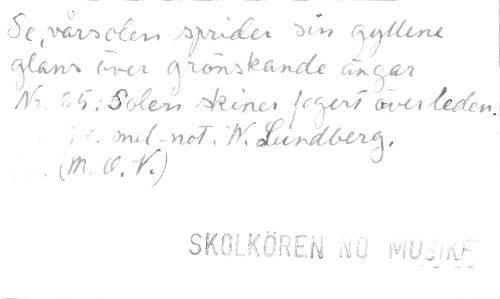 Se, vårsolen sprider sin gyllene
glans över grönskande ängar
Nr. 65: Solen skiner fagert över leden.
mel.-not. W. Lundberg.
(M. O. V.)
SKOLKÖREN NO MUSIKF